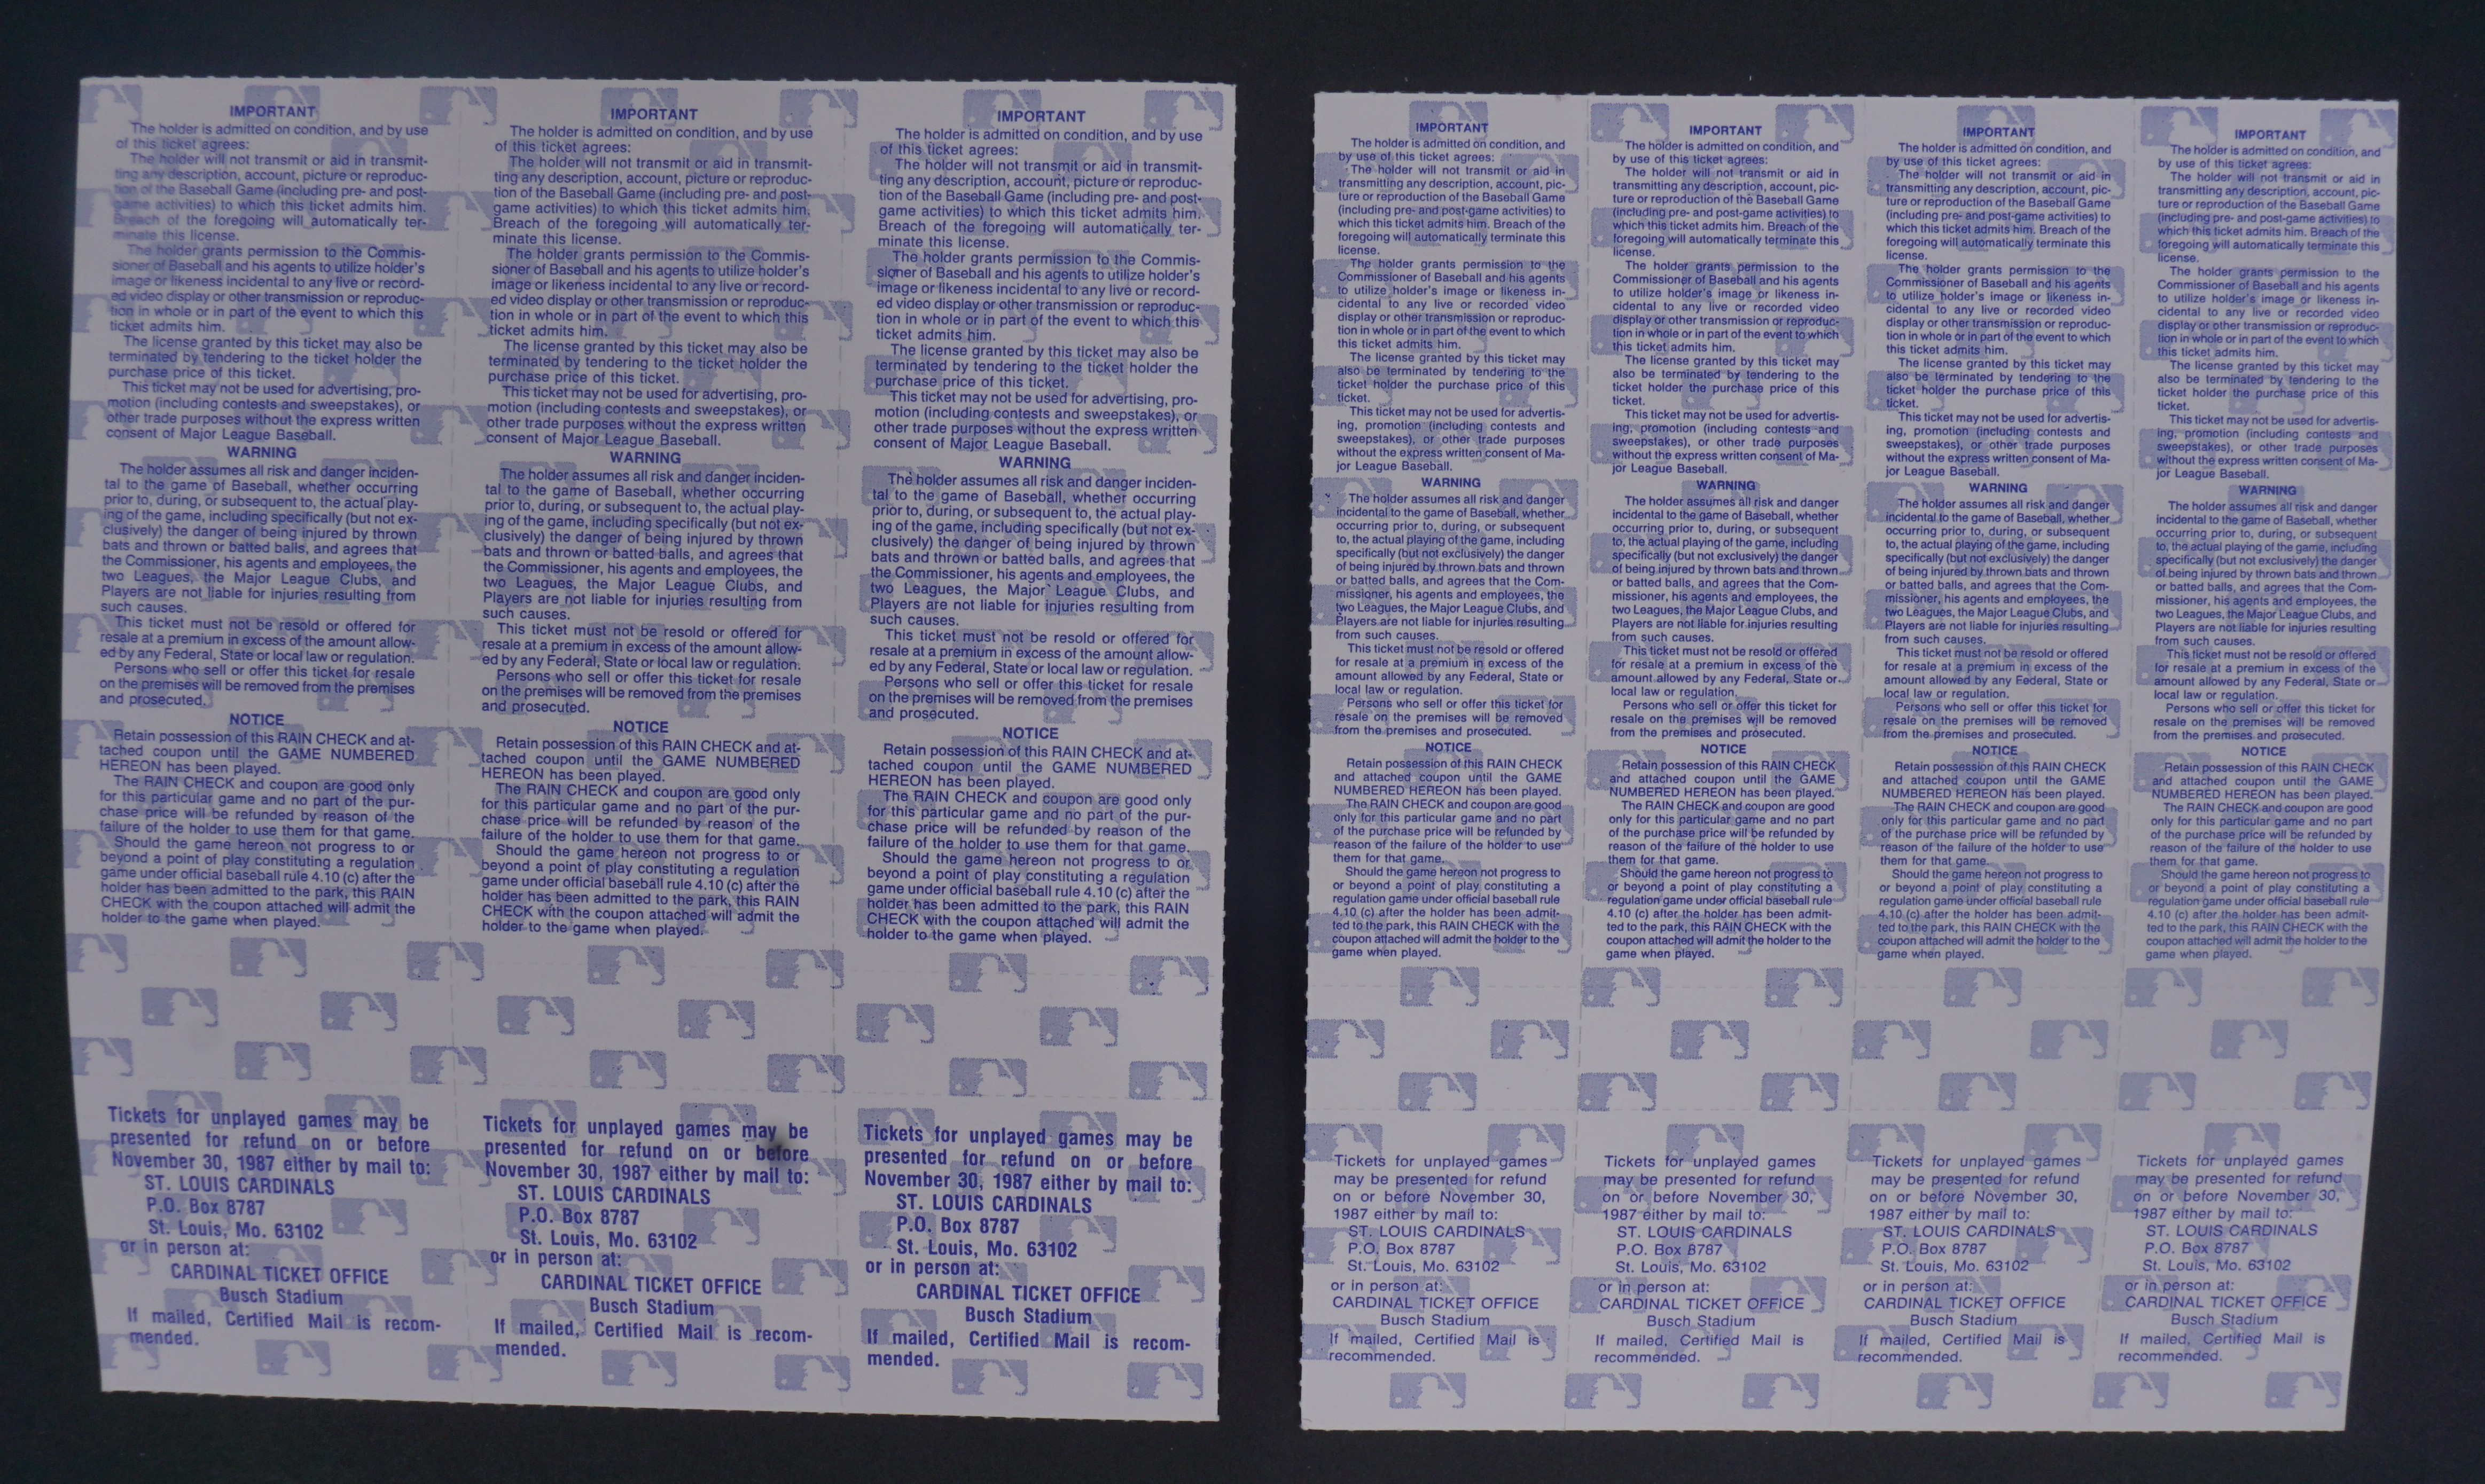 IMPORTANT
The holder is admitted on condition, and by use
of this ticket agrees:
The holder will not transmit or aid in transmit-
ting any description, account, picture or reproduc-
tion of the Baseball Game (including pre- and post-
game activities) to which this ticket admits him.
Breach of the foregoing will automatically ter-
minate this license.
The holder grants permission to the Commis-
sioner of Baseball and his agents to utilize holder's
image or likeness incidental to any live or record-
ed video display or other transmission or reproduc-
tion in whole or in part of the event to which this
ticket admits him.
The license granted by this ticket may also be
terminated by tendering to the ticket holder the
purchase price of this ticket.
This ticket may not be used for advertising, pro-
motion (including contests and sweepstakes), or
other trade purposes without the express written
consent of Major League Baseball.
WARNING
The holder assumes all risk and danger inciden-
tal to the game of Baseball, whether occurring
prior to, during, or subsequent to, the actual play-
ing of the game, including specifically (but not ex-
clusively) the danger of being injured by thrown
bats and thrown or batted balls, and agrees that
the Commissioner, his agents and employees, the
two Leagues, the Major League Clubs, and
Players are not liable for injuries resulting from
such causes.
This ticket must not be resold or offered for
resale at a premium in excess of the amount allow-
ed by any Federal, State or local law or regulation.
Persons who sell or offer this ticket for resale
on the premises will be removed from the premises
and prosecuted.
NOTICE
Retain possession of this RAIN CHECK and at-
tached coupon until the GAME NUMBERED
HEREON has been played.
The RAIN CHECK and coupon are good only
for this particular game and no part of the pur-
chase price will be refunded by reason of the
failure of the holder to use them for that game.
Should the game hereon not progress to or
beyond a point of play constituting a regulation
game under official baseball rule 4.10 (c) after the
holder has been admitted to the park, this RAIN
CHECK with the coupon attached will admit the
holder to the game when played.
Tickets for unplayed games may be
presented for refund on or before
November 30, 1987 either by mail to:
ST. LOUIS CARDINALS
P.O. Box 8787
St. Louis, Mo. 63102
or in person at:
CARDINAL TICKET OFFICE
Busch Stadium
If mailed, Certified Mail is recom-
mended.
IMPORTANT
The holder is admitted on condition, and by use
of this ticket agrees:
The holder will not transmit or aid in transmit-
ting any description, account, picture or reproduc-
tion of the Baseball Game (including pre- and post-
game activities) to which this ticket admits him.
Breach of the foregoing will automatically ter-
minate this license.
The holder grants permission to the Commis-
sioner of Baseball and his agents to utilize holder's
image or likeness incidental to any live or record-
ed video display or other transmission or reproduc-
tion in whole or in part of the event to which this
ticket admits him.
The license granted by this ticket may also be
terminated by tendering to the ticket holder the
purchase price of this ticket.
This ticket may not be used for advertising, pro-
motion (including contests and sweepstakes), or
other trade purposes without the express written
consent of Major League Baseball.
WARNING
The holder assumes all risk and danger inciden-
tal to the game of Baseball, whether occurring
prior to, during, or subsequent to, the actual play-
ing of the game, including specifically (but not ex-
clusively) the danger of being injured by thrown
bats and thrown or batted balls, and agrees that
the Commissioner, his agents and employees, the
two Leagues, the Major League Clubs, and
Players are not liable for injuries resulting from
such causes.
This ticket must not be resold or offered for
resale at a premium in excess of the amount allow-
ed by any Federal, State or local law or regulation.
Persons who sell or offer this ticket for resale
on the premises will be removed from the premises
and prosecuted.
NOTICE
Retain possession of this RAIN CHECK and at-
tached coupon until the GAME NUMBERED
HEREON has been played.
The RAIN CHECK and coupon are good only
for this particular game and no part of the pur-
chase price will be refunded by reason of the
failure of the holder to use them for that game.
Should the game hereon not progress to or
beyond a point of play constituting a regulation
game under official baseball rule 4.10 (c) after the
holder has been admitted to the park, this RAIN
CHECK with the coupon attached will admit the
holder to the game when played.
Tickets for unplayed games may be
presented for refund on or before
November 30, 1987 either by mail to:
ST. LOUIS CARDINALS
P.O. Box 8787
St. Louis, Mo. 63102
or in person at:
CARDINAL TICKET OFFICE
Busch Stadium
If mailed, Certified Mail is recom-
mended.
IMPORTANT
The holder is admitted on condition, and by use
of this ticket agrees:
The holder will not transmit or aid in transmit-
ting any description, account, picture or reproduc-
tion of the Baseball Game (including pre- and post-
game activities) to which this ticket admits him.
Breach of the foregoing will automatically ter-
minate this license.
The holder grants permission to the Commis-
sioner of Baseball and his agents to utilize holder's
image or likeness incidental to any live or record-
ed video display or other transmission or reproduc-
tion in whole or in part of the event to which this
ticket admits him.
The license granted by this ticket may also be
terminated by tendering to the ticket holder the
purchase price of this ticket.
This ticket may not be used for advertising, pro-
motion (including contests and sweepstakes), or
other trade purposes without the express written
consent of Major League Baseball.
WARNING
The holder assumes all risk and danger inciden-
tal to the game of Baseball, whether occurring
prior to, during, or subsequent to, the actual play-
ing of the game, including specifically (but not ex-
clusively) the danger of being injured by thrown
bats and thrown or batted balls, and agrees that
the Commissioner, his agents and employees, the
two Leagues, the Major League Clubs, and
Players are not liable for injuries resulting from
such causes.
This ticket must not be resold or offered for
resale at a premium in excess of the amount allow-
ed by any Federal, State or local law or regulation.
Persons who sell or offer this ticket for resale
on the premises will be removed from the premises
and prosecuted.
NOTICE
Retain possession of this RAIN CHECK and at-
tached coupon until the GAME NUMBERED
HEREON has been played.
The RAIN CHECK and coupon are good only
for this particular game and no part of the pur-
chase price will be refunded by reason of the
failure of the holder to use them for that game.
Should the game hereon not progress to or
beyond a point of play constituting a regulation
game under official baseball rule 4.10 (c) after the
holder has been admitted to the park, this RAIN
CHECK with the coupon attached will admit the
holder to the game when played.
Tickets for unplayed games may be
presented for refund on or before
November 30, 1987 either by mail to:
ST. LOUIS CARDINALS
P.O. Box 8787
St. Louis, Mo. 63102
or in person at:
CARDINAL TICKET OFFICE
Busch Stadium
If mailed, Certified Mail is recom-
mended.
IMPORTANT
The holder is admitted on condition, and
by use of this ticket agrees:
The holder will not transmit or aid in
transmitting any description, account, pic-
ture or reproduction of the Baseball Game
(including pre- and post-game activities) to
which this ticket admits him. Breach of the
foregoing will automatically terminate this
license.
The holder grants permission to the
Commissioner of Baseball and his agents
to utilize holder's image or likeness in-
cidental to any live or recorded video
display or other transmission or reproduc-
tion in whole or in part of the event to which
this ticket admits him.
The license granted by this ticket may
also be terminated by tendering to the
ticket holder the purchase price of this
ticket.
This ticket may not be used for advertis-
ing, promotion (including contests and
sweepstakes), or other trade purposes
without the express written consent of Ma-
jor League Baseball.
WARNING
The holder assumes all risk and danger
incidental to the game of Baseball, whether
occurring prior to, during, or subsequent
to, the actual playing of the game, including
specifically (but not exclusively) the danger
of being injured by thrown bats and thrown
or batted balls, and agrees that the Com-
missioner, his agents and employees, the
two Leagues, the Major League Clubs, and
Players are not liable for injuries resulting
from such causes.
This ticket must not be resold or offered
for resale at a premium in excess of the
amount allowed by any Federal, State or
local law or regulation.
Persons who sell or offer this ticket for
resale on the premises will be removed
from the premises and prosecuted.
NOTICE
Retain possession of this RAIN CHECK
and attached coupon until the GAME
NUMBERED HEREON has been played.
The RAIN CHECK and coupon are good
only for this particular game and no part
of the purchase price will be refunded by
reason of the failure of the holder to use
them for that game.
Should the game hereon not progress to
or beyond a point of play constituting a
regulation game under official baseball rule
4.10 (c) after the holder has been admit-
ted to the park, this RAIN CHECK with the
coupon attached will admit the holder to the
game when played.
Tickets for unplayed games
may be presented for refund
on or before November 30,
1987 either by mail to:
ST. LOUIS CARDINALS
P.O. Box 8787
St. Louis, Mo. 63102
or in person at:
CARDINAL TICKET OFFICE
Busch Stadium
If mailed, Certified Mail is
recommended.
IMPORTANT
The holder is admitted on condition, and
by use of this ticket agrees:
The holder will not transmit or aid in
transmitting any description, account, pic-
ture or reproduction of the Baseball Game
(including pre- and post-game activities) to
which this ticket admits him. Breach of the
foregoing will automatically terminate this
license.
The holder grants permission to the
Commissioner of Baseball and his agents
to utilize holder's image or likeness in-
cidental to any live or recorded video
display or other transmission or reproduc-
tion in whole or in part of the event to which
this ticket admits him.
The license granted by this ticket may
also be terminated by tendering to the
ticket holder the purchase price of this
ticket.
This ticket may not be used for advertis-
ing, promotion (including contests and
sweepstakes), or other trade purposes
without the express written consent of Ma-
jor League Baseball.
WARNING
The holder assumes all risk and danger
incidental to the game of Baseball, whether
occurring prior to, during, or subsequent
to, the actual playing of the game, including
specifically (but not exclusively) the danger
of being injured by thrown bats and thrown
or batted balls, and agrees that the Com-
missioner, his agents and employees, the
two Leagues, the Major League Clubs, and
Players are not liable for injuries resulting
from such causes.
This ticket must not be resold or offered
for resale at a premium in excess of the
amount allowed by any Federal, State or
local law or regulation.
Persons who sell or offer this ticket for
resale on the premises will be removed
from the premises and prosecuted.
NOTICE
Retain possession of this RAIN CHECK
and attached coupon until the GAME
NUMBERED HEREON has been played.
The RAIN CHECK and coupon are good
only for this particular game and no part
of the purchase price will be refunded by
reason of the failure of the holder to use
them for that game.
Should the game hereon not progress to
or beyond a point of play constituting a
regulation game under official baseball rule
4.10 (c) after the holder has been admit-
ted to the park, this RAIN CHECK with the
coupon attached will admit the holder to the
game when played.
Tickets for unplayed games
may be presented for refund
on or before November 30,
1987 either by mail to:
ST. LOUIS CARDINALS
P.O. Box 8787
St. Louis, Mo. 63102
or in person at:
CARDINAL TICKET OFFICE
Busch Stadium
If mailed, Certified Mail is
recommended.
IMPORTANT
The holder is admitted on condition, and
by use of this ticket agrees:
The holder will not transmit or aid in
transmitting any description, account, pic-
ture or reproduction of the Baseball Game
(including pre- and post-game activities) to
which this ticket admits him. Breach of the
foregoing will automatically terminate this
license.
The holder grants permission to the
Commissioner of Baseball and his agents
to utilize holder's image or likeness in-
cidental to any live or recorded video
display or other transmission or reproduc-
tion in whole or in part of the event to which
this ticket admits him.
The license granted by this ticket may
also be terminated by tendering to the
ticket holder the purchase price of this
ticket.
This ticket may not be used for advertis-
ing, promotion (including contests and
sweepstakes), or other trade purposes
without the express written consent of Ma-
jor League Baseball.
WARNING
The holder assumes all risk and danger
incidental to the game of Baseball, whether
occurring prior to, during, or subsequent
to, the actual playing of the game, including
specifically (but not exclusively) the danger
of being injured by thrown bats and thrown
or batted balls, and agrees that the Com-
missioner, his agents and employees, the
two Leagues, the Major League Clubs, and
Players are not liable for injuries resulting
from such causes.
This ticket must not be resold or offered
for resale at a premium in excess of the
amount allowed by any Federal, State or
local law or regulation.
Persons who sell or offer this ticket for
resale on the premises will be removed
from the premises and prosecuted.
NOTICE
Retain possession of this RAIN CHECK
and attached coupon until the GAME
NUMBERED HEREON has been played.
The RAIN CHECK and coupon are good
only for this particular game and no part
of the purchase price will be refunded by
reason of the failure of the holder to use
them for that game.
Should the game hereon not progress to
or beyond a point of play constituting a
regulation game under official baseball rule
4.10 (c) after the holder has been admit-
ted to the park, this RAIN CHECK with the
coupon attached will admit the holder to the
game when played.
Tickets for unplayed games
may be presented for refund
on or before November 30,
1987 either by mail to:
ST. LOUIS CARDINALS
P.O. Box 8787
St. Louis, Mo. 63102
or in person at:
CARDINAL TICKET OFFICE
Busch Stadium
If mailed, Certified Mail is
recommended.
IMPORTANT
The holder is admitted on condition, and
by use of this ticket agrees:
The holder will not transmit or aid in
transmitting any description, account, pic-
ture or reproduction of the Baseball Game
(including pre- and post-game activities) to
which this ticket admits him. Breach of the
foregoing will automatically terminate this
license.
The holder grants permission to the
Commissioner of Baseball and his agents
to utilize holder's image or likeness in-
cidental to any live or recorded video
display or other transmission or reproduc-
tion in whole or in part of the event to which
this ticket admits him.
The license granted by this ticket may
also be terminated by tendering to the
ticket holder the purchase price of this
ticket.
This ticket may not be used for advertis-
ing, promotion (including contests and
sweepstakes), or other trade purposes
without the express written consent of Ma-
jor League Baseball.
WARNING
The holder assumes all risk and danger
incidental to the game of Baseball, whether
occurring prior to, during, or subsequent
to, the actual playing of the game, including
specifically (but not exclusively) the danger
of being injured by thrown bats and thrown
or batted balls, and agrees that the Com-
missioner, his agents and employees, the
two Leagues, the Major League Clubs, and
Players are not liable for injuries resulting
from such causes.
This ticket must not be resold or offered
for resale at a premium in excess of the
amount allowed by any Federal, State or
local law or regulation.
Persons who sell or offer this ticket for
resale on the premises will be removed
from the premises and prosecuted.
NOTICE
Retain possession of this RAIN CHECK
and attached coupon until the GAME
NUMBERED HEREON has been played.
The RAIN CHECK and coupon are good
only for this particular game and no part
of the purchase price will be refunded by
reason of the failure of the holder to use
them for that game.
Should the game hereon not progress to
or beyond a point of play constituting a
regulation game under official baseball rule
4.10 (c) after the holder has been admit-
ted to the park, this RAIN CHECK with the
coupon attached will admit the holder to the
game when played.
Tickets for unplayed games
may be presented for refund
on or before November 30,
1987 either by mail to:
ST. LOUIS CARDINALS
P.O. Box 8787
St. Louis, Mo. 63102
or in person at:
CARDINAL TICKET OFFICE
Busch Stadium
If mailed, Certified Mail is
recommended.